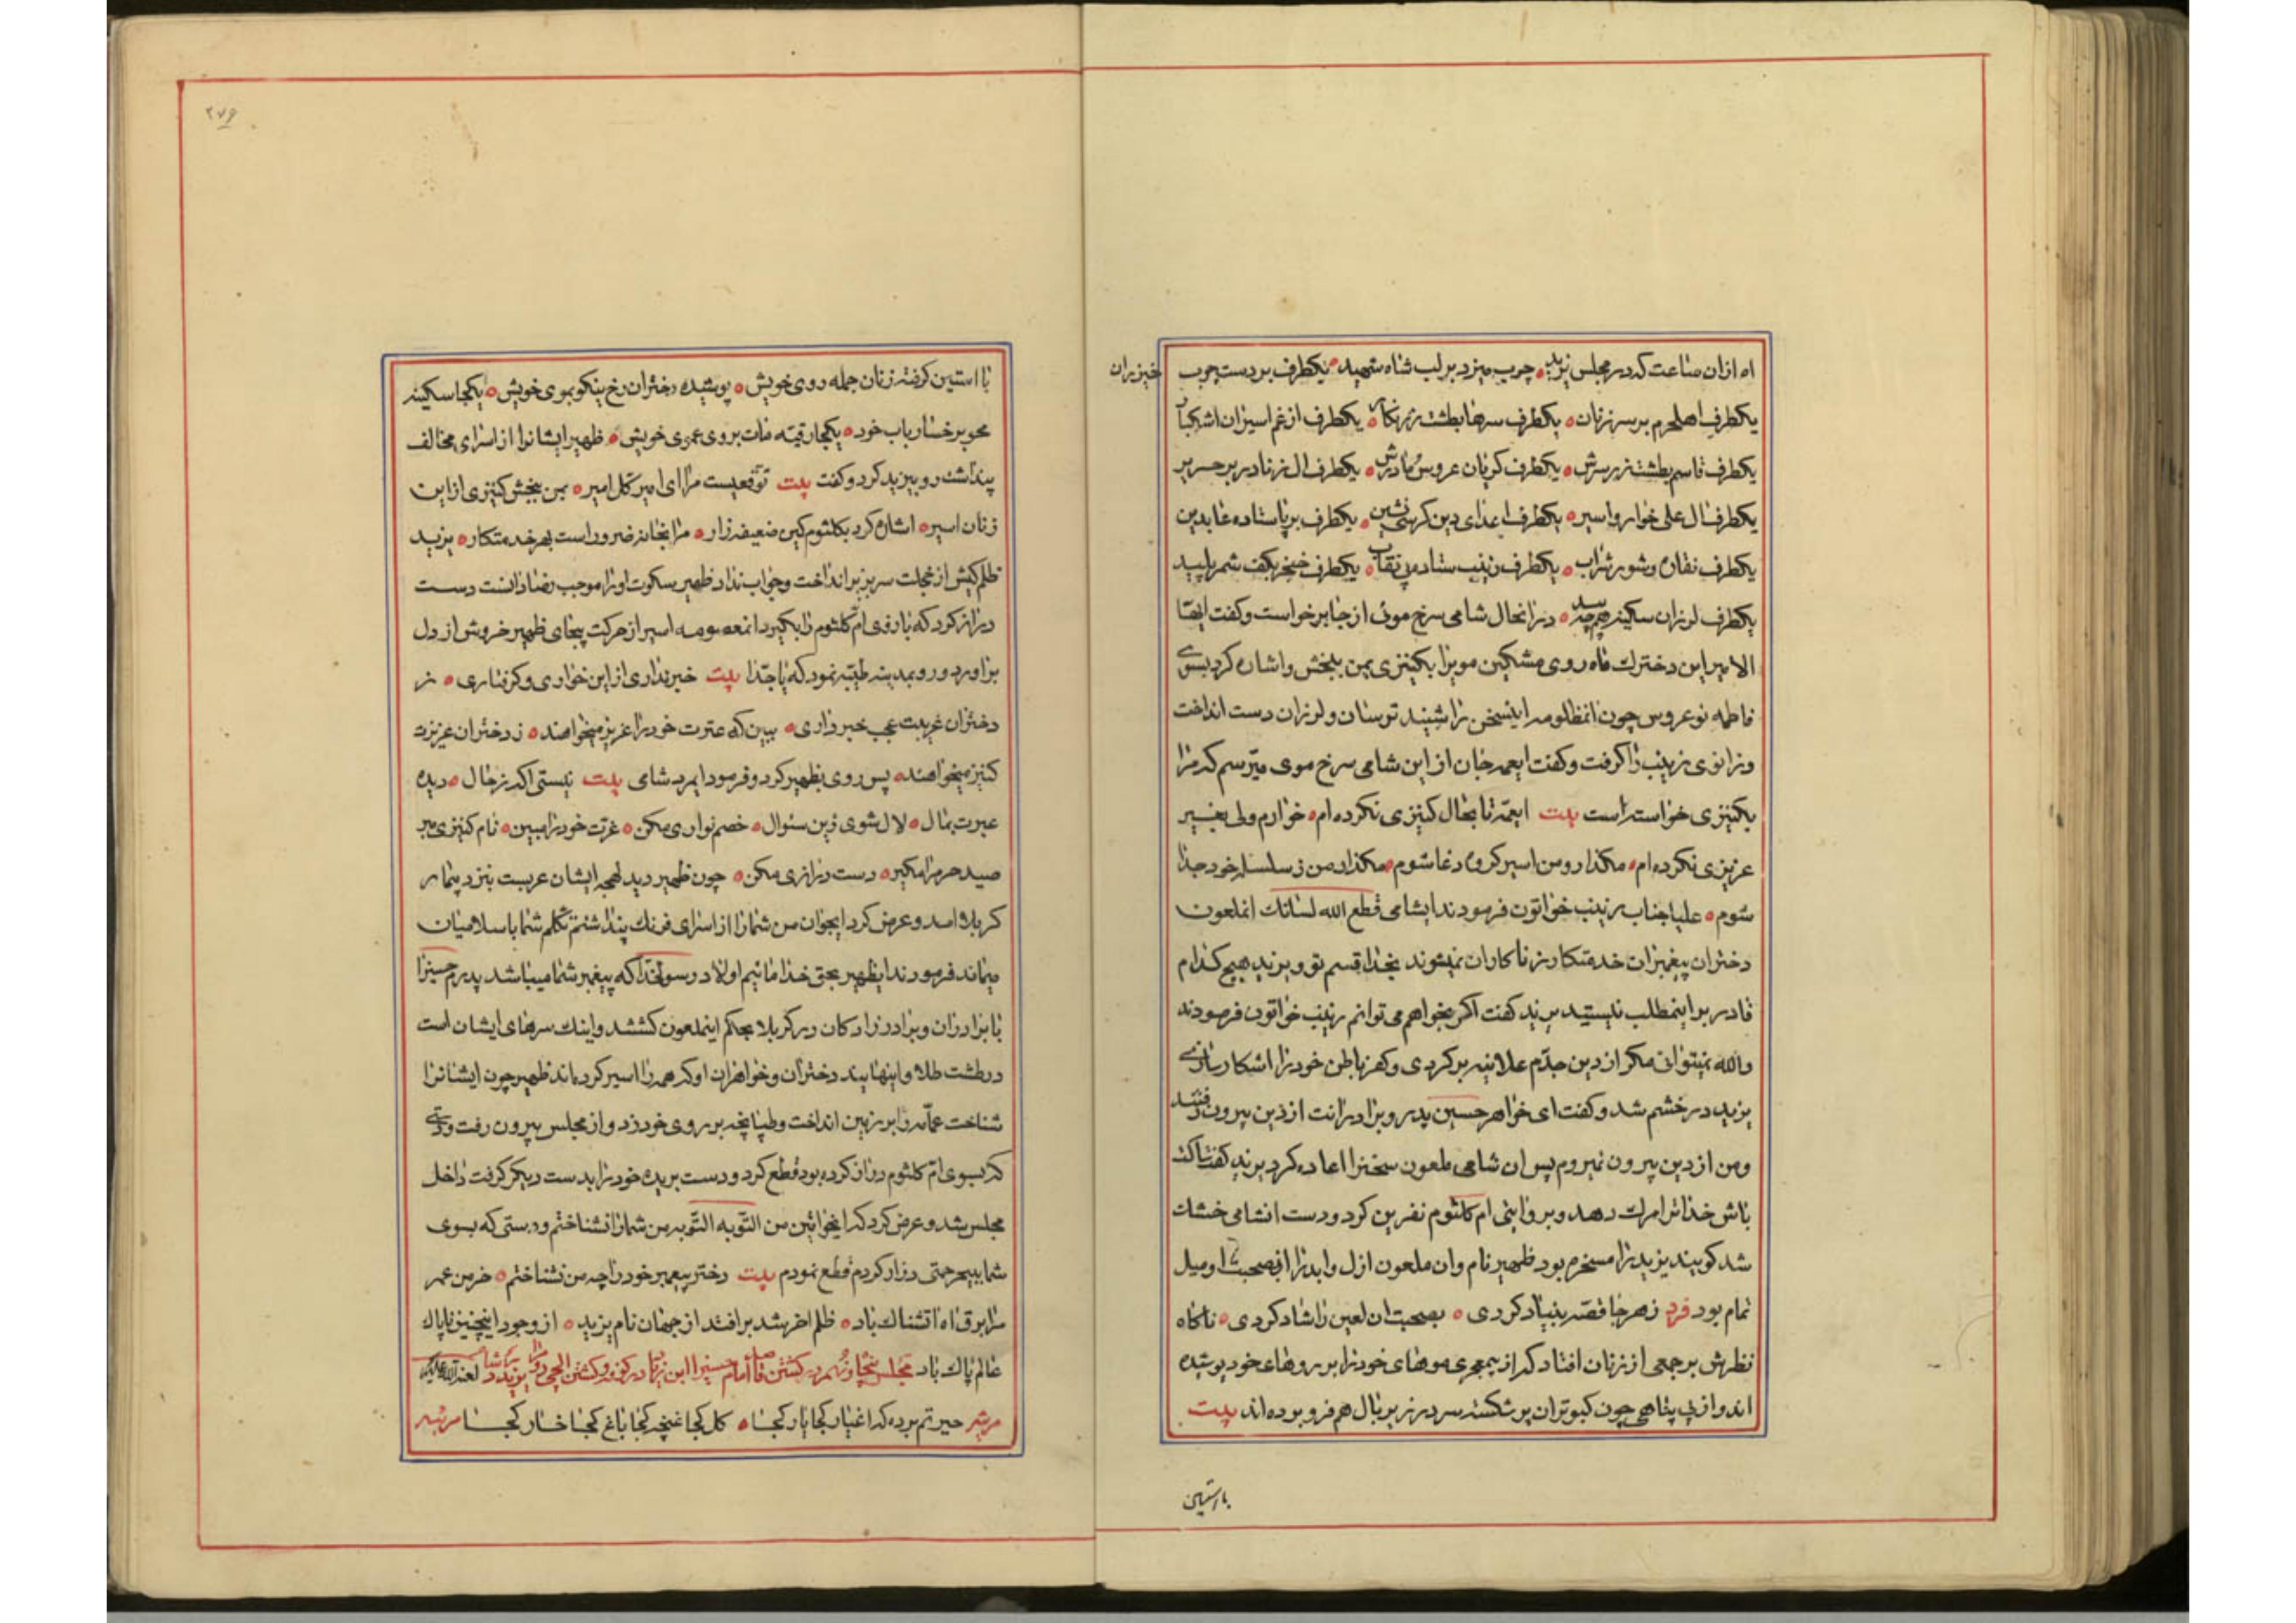 اه ازان ساعت که در مجلس یزید چوب میزد بر لب شاه شهید یکطرف بر دست چوب خیزران
یکطرف اهلحرم بر سر زنان یکطرف سرها بطشت زرنکار یکطرف از غم اسیران اشکبار
یکطرف قاسم بطشت زر سرش یکطرف کریان عروس و مادرش یکطرف ال زنا در بر حریر
یکطرف ال علی خوار و اسیر یکطرف اعدای دین کرسی نشین یکطرف بر پا ستاده عابدین
یکطرف نقاره و شور شراب یکطرف زینب ستاده بی نقاب یکطرف خنجر بکف شمر پلید
یکطرف لرزان سکینه همچو بید در انحال شامی سرخ موئی از جا بر خواست و کفت ایها
الامیر این دخترك ماه روی مشکین مویرا بکنیزی بمن ببخش و اشاره کرد بسوی
فاطمه نو عروس چون انمظلومه اینسخن را شنید ترسان و لرزان دست انداخت
و زانوی زینب را کرفت و کفت ایعمه جان از این شامی سرخ موی میترسم که مرا
بکنیزی خواسته است بیت ایعمه تا بحال کنیزی نکرده ام خوارم ولی بغیر
عزیزی نکرده ام مکذار و من اسیر کروه دغا شوم مکذار من ز سلسله خود جدا
شوم علیا جناب زینب خواتون فرمودند ایشامی قطع الله لسانك ایملعون
دختران پیغمبران خدمتکار زناکاران نمیشوند بخدا قسم تو و یزید هیچ کدام
قادر بر اینمطلب نیستید یزید کفت اکر بخواهم می توانم زینب خواتون فرمودند
والله نمیتوانی مکر از دین جدم علانیه بر کردی و کفر باطن خود را اشکار سازی
یزید در خشم شد و کفت ای خواهر حسین پدر و برادرانت از دین بیرون رفتند
و من از دین بیرون نمیروم پس ان شامی ملعون سخنرا اعاده کرد یزید کفت ساکت
باش خدا ترا مرك دهد و بروایتی ام کلثوم نفرین کرد و دست انشامی خشك
شد کویند یزید را مسخره بود ظهیر نام وان ملعون ازل و ابد را از صحبت او میل
تمام بود فرد زهر جا قصه بنیاد کردی بصحبت ان لعین را شاد کردی ناکاه
نظرش بر جمعی از زنان افتاد که از بیمعجری موهای خود را بر روهای خود پوشیده
اند و از بی پناهی چون کبوتران پر شکسته سر در زیر بال هم فرو برده اند بیت
با استین
۲۷۶
با استین کرفته زنان جمله روی خویش پوشیده دختران رخ نیکو بموی خویش یکجا سکینه
محو بر خسار باب خود یکجا رقیه مات بروی عموی خویش ظهیر ایشانرا از اسرای مخالف
پنداشت رو بیزید کرد و کفت بیت توقعیست مرا ای امیر کل امیر بمن ببخش کنیزی از این
زنان اسیر اشاره کرد بکلثوم کین ضعیفه زار مرا بخانه ضرور است بهر خدمتکار یزید
ظلم کیش از خجلت سر بزیر انداخت و جواب نداد ظهیر سکوت او را موجب رضا دانست دست
دراز کرد که بازوی ام کلثوم را بکیرد انمعصومه اسیر از حرکت بیجای ظهیر خروش از دل
براورد و رو بمدینه طیبه نمود که یا جدا بیت خبر نداری از این خواری و کرفتاری ز
دختران غریبت عجب خبر داری ببین که عترت خود را عزیز میخواهند ز دختران عزیزت
کنیز میخواهند پس روی بظهیر کرد و فرمود ایمرد شامی بیت نیستی اکه ز حال دیده
عبرت بمال لال شوی زین سئوال خصم نوازی مکن غرت خود را ببین نام کنیزی مبر
صید حرم را مکیر دست درازی مکن چون ظهیر دید لهجه ایشان عربیست بنزد بیمار
کربلا امد و عرض کرد ایجوان من شما را از اسرای فرنك پنداشتم تکلم شما باسلامیان
میماند فرمودند ایظهیر بحق خدا مائیم اولاد رسولخدا که پیغمبر شما میباشد پدرم حسینرا
با برادران و برادر زادکان در کربلا بحکم اینملعون کشتند و اینك سرهای ایشان است
در طشت طلا و اینها بیند دختران و خواهران او که همه را اسیر کرده اند ظهیر چون ایشانرا
شناخت عمامه را بر زمین انداخت و طپانچه بر روی خود زد و از مجلس بیرون رفت و دستی
که بسوی ام کلثوم دراز کرده بود قطع کرد و دست بریده خود را بدست دیکر کرفت داخل
مجلس شد و عرض کرد که ایخواتین من التوبه التوبه من شما را نشناختم و دستی که بسوی
شما ببیحرمتی دراز کردم قطع نمودم بیت دختر پیغمبر خود را چه من نشناختم خرمن عمر
مرا برق اه اتشناك باد ظلم اخر شد بر افتد از جهان نام یزید از وجود اینچنین ناپاك
عالم پاك باد مجلس پنجاه و نهم در کشتن قاصد امام حسین را ابن زیاد در کوفه و کشتن ایلچی روم را یزید در شام لعنة الله علیهم
مرثیه حیرتم برده که اغیار کجا یار کجا کل کجا غنچه کجا باغ کجا خار کجا مرثیه